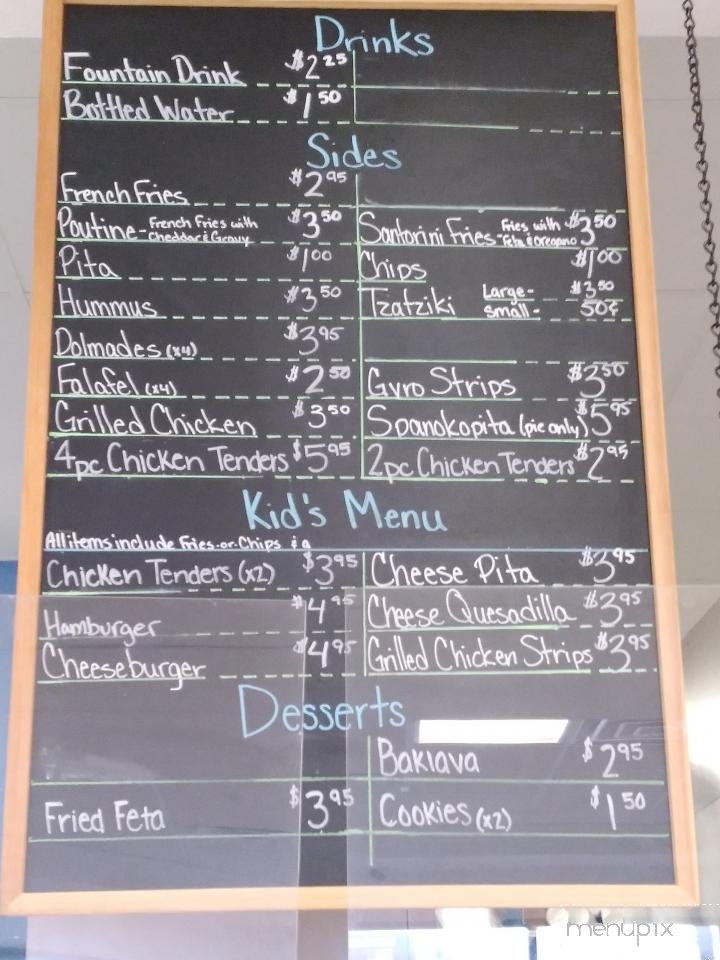 Drinks
Fountain Drink $2.25
Bottled Water $1.50
Sides
French Fries $2.95
Poutine - French Fries with Cheddar & Gravy $3.50
Santorini Fries - Fries with Feta & Oregano $3.50
Pita $1.00
Chips $1.00
Hummus $3.50
Tzatziki Large - $3.50
Small - 50¢
Dolmades (x4) $3.95
Falafel (x4) $2.50
Gyro Strips $3.50
Grilled Chicken $3.50
Spanokopita (pie only) $5.95
4pc Chicken Tenders $5.95
2pc Chicken Tenders $2.95
Kid's Menu
All items include Fries -or- Chips & a
Chicken Tenders (x2) $3.95
Cheese Pita $3.95
Hamburger $4.95
Cheese Quesadilla $3.95
Cheeseburger $4.95
Grilled Chicken Strips $3.95
Desserts
Baklava $2.95
Fried Feta $3.95
Cookies (x2) $1.50
menupix